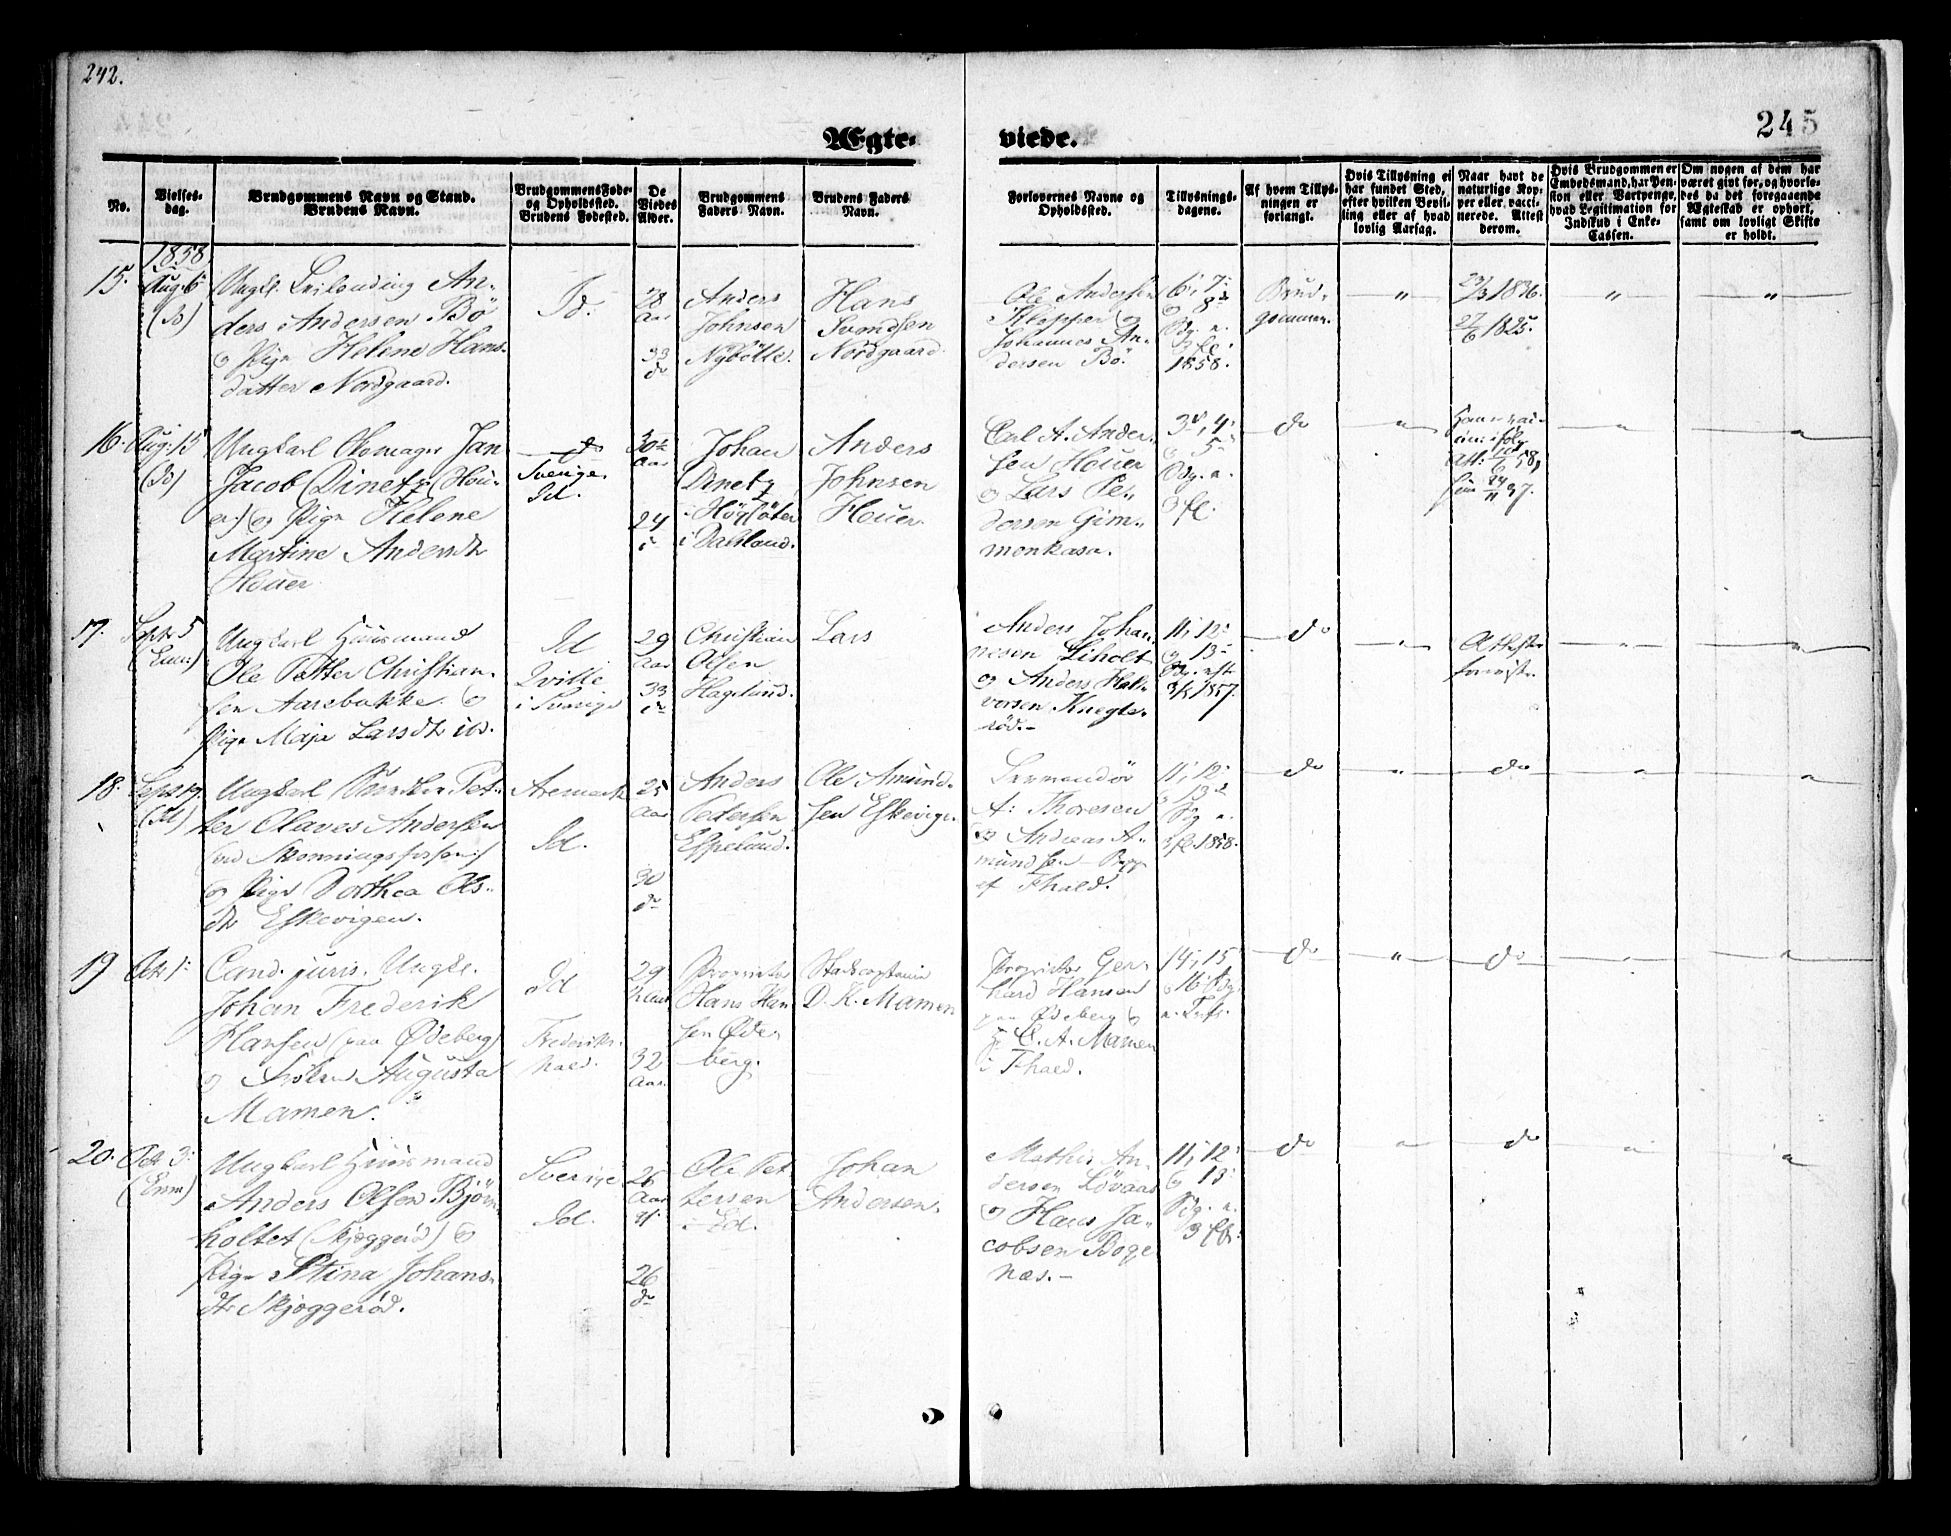 242.
245
Ægte-
viede.
No.
Vielses-
dag.
Brudgommens Navn og Stand.
Brudens Navn.
Brudgommens Føde-
og Opholdssted.
Brudens Fødested.
De
Viedes
Alder.
Brudgommens
Faders Navn.
Brudens Faders
Navn.
Forlovernes Navne og
Opholdssted.
Tillysnings-
dagene.
Af hvem Tillys-
ningen er
forlangt.
Hvis Tillysning ei
har fundet Sted,
efter hvilken Bevil-
ling eller af hvad
lovlig Aarsag.
Naar havt de
naturlige Kop-
per eller vacci-
nerede. Attest
derom.
Hvis Brudgommen er
Embedsmand, har Pen-
sion eller Vartpenge,
hvad Legitimation for
Indskud i Enke-
Cassen.
Om nogen af dem har
været gift før, og hvorle-
des da det foregaaende
Ægteskab er ophørt,
samt om lovligt Skifte
er holdt.
1858
15.
Aug: 6
Ungk. Leilending An-
ders Andersen Bö
og Pige Helene Hans-
datter Nordgaard.
Id.
28
Aar
33
do
Anders
Johnsen
Nyböttte.
Hans
Svendsen
Nordgaard
Ole Andersen
Klopper og
Johannes An-
dersen Bö.
6; 7
og 8
1858.
Brud-
gommen.
"
23/3 1836.
27/6 1825.
"
"
16.
Aug: 15
Ungkarl Skomager Jan
Jacob (Dinetz) Hou-
er) og Pige Helene
Martine Andersdtr
Houer
Sverige
Id.
30
Aar
24
Johan
Dinetz
i Högsäter
i Dalsland.
Anders
Johnsen
Houer
Carl A. Ander-
sen Houer
og Lars Pe-
dersen Gim-
monkasa.
3, 4
og 5
do
"
17.
Septr 5
(Enn:)
Ungkarl Huusmand
Ole Petter Christian-
sen Aarebakke og
Pige Maja Larsdtr ibd.
Id
Qville
i Sverige
29
Aar
33
Christian
Olsen
Haglund.
Lars
Anders Johan-
nesen Liholt
og Anders Hal-
vorsen Knegte-
röd.-
11; 12
og 13
1857.
do
"
Attester
"
18.
Septr 19.
(Id)
Ungkarl Pet-
ter Olaves Andersen
og Pige Dorthea Ols-
dtr Eskevigen.
Aremark
Id.
25
Aar
30
do
Anders
Pedersen
Espelund.
Ole Amund-
sen Eskevigen
A: Thoresen
og Andreas A-
mundsen
af Fhald.
11; 12
og 13
1858.
do
"
do
"
"
19
Octr 1
Cand. juris. Ungk.
Johan Frederik
Hansen (paa Ödeberg)
og Fröken Augusta
Mamen.
Id
Frederiks-
hald.
29
32
Aar
Proprietær
Hans Han
sen Öde-
berg.
Stadscaptain
D. K. Mamen
Proprietær Ger-
hard Hansen
paa Ödeberg og
C. A. Mamen
i Fhald.
14; 15
og 16
do
"
do
"
"
20.
Octr 3
(Enn)
Ungkarl Huusmand
Anders Olsen Björn-
holtet (Skjöggeröd) og
Pige Stina Johans-
dtr Skjöggeröd.
Sverige
Id.
26
Aar
26
do
Ole Pet
tersen
Ed.
Johan
Andersen.
Mathis An-
dersen Lövaas
og Hans Ja-
cobsen Boge
næs.-
11; 12
og 13
do
"
do
"
"